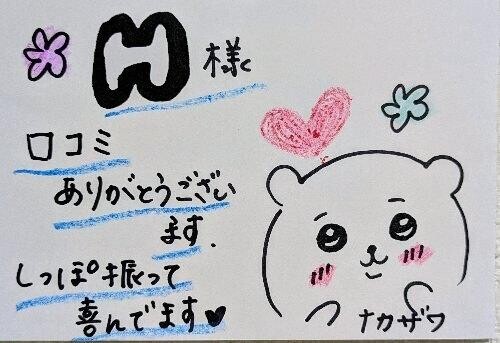 H様
口コミ
ありがとうござい
ます.
しっぽ振って
喜んでます♥
ナカザワ